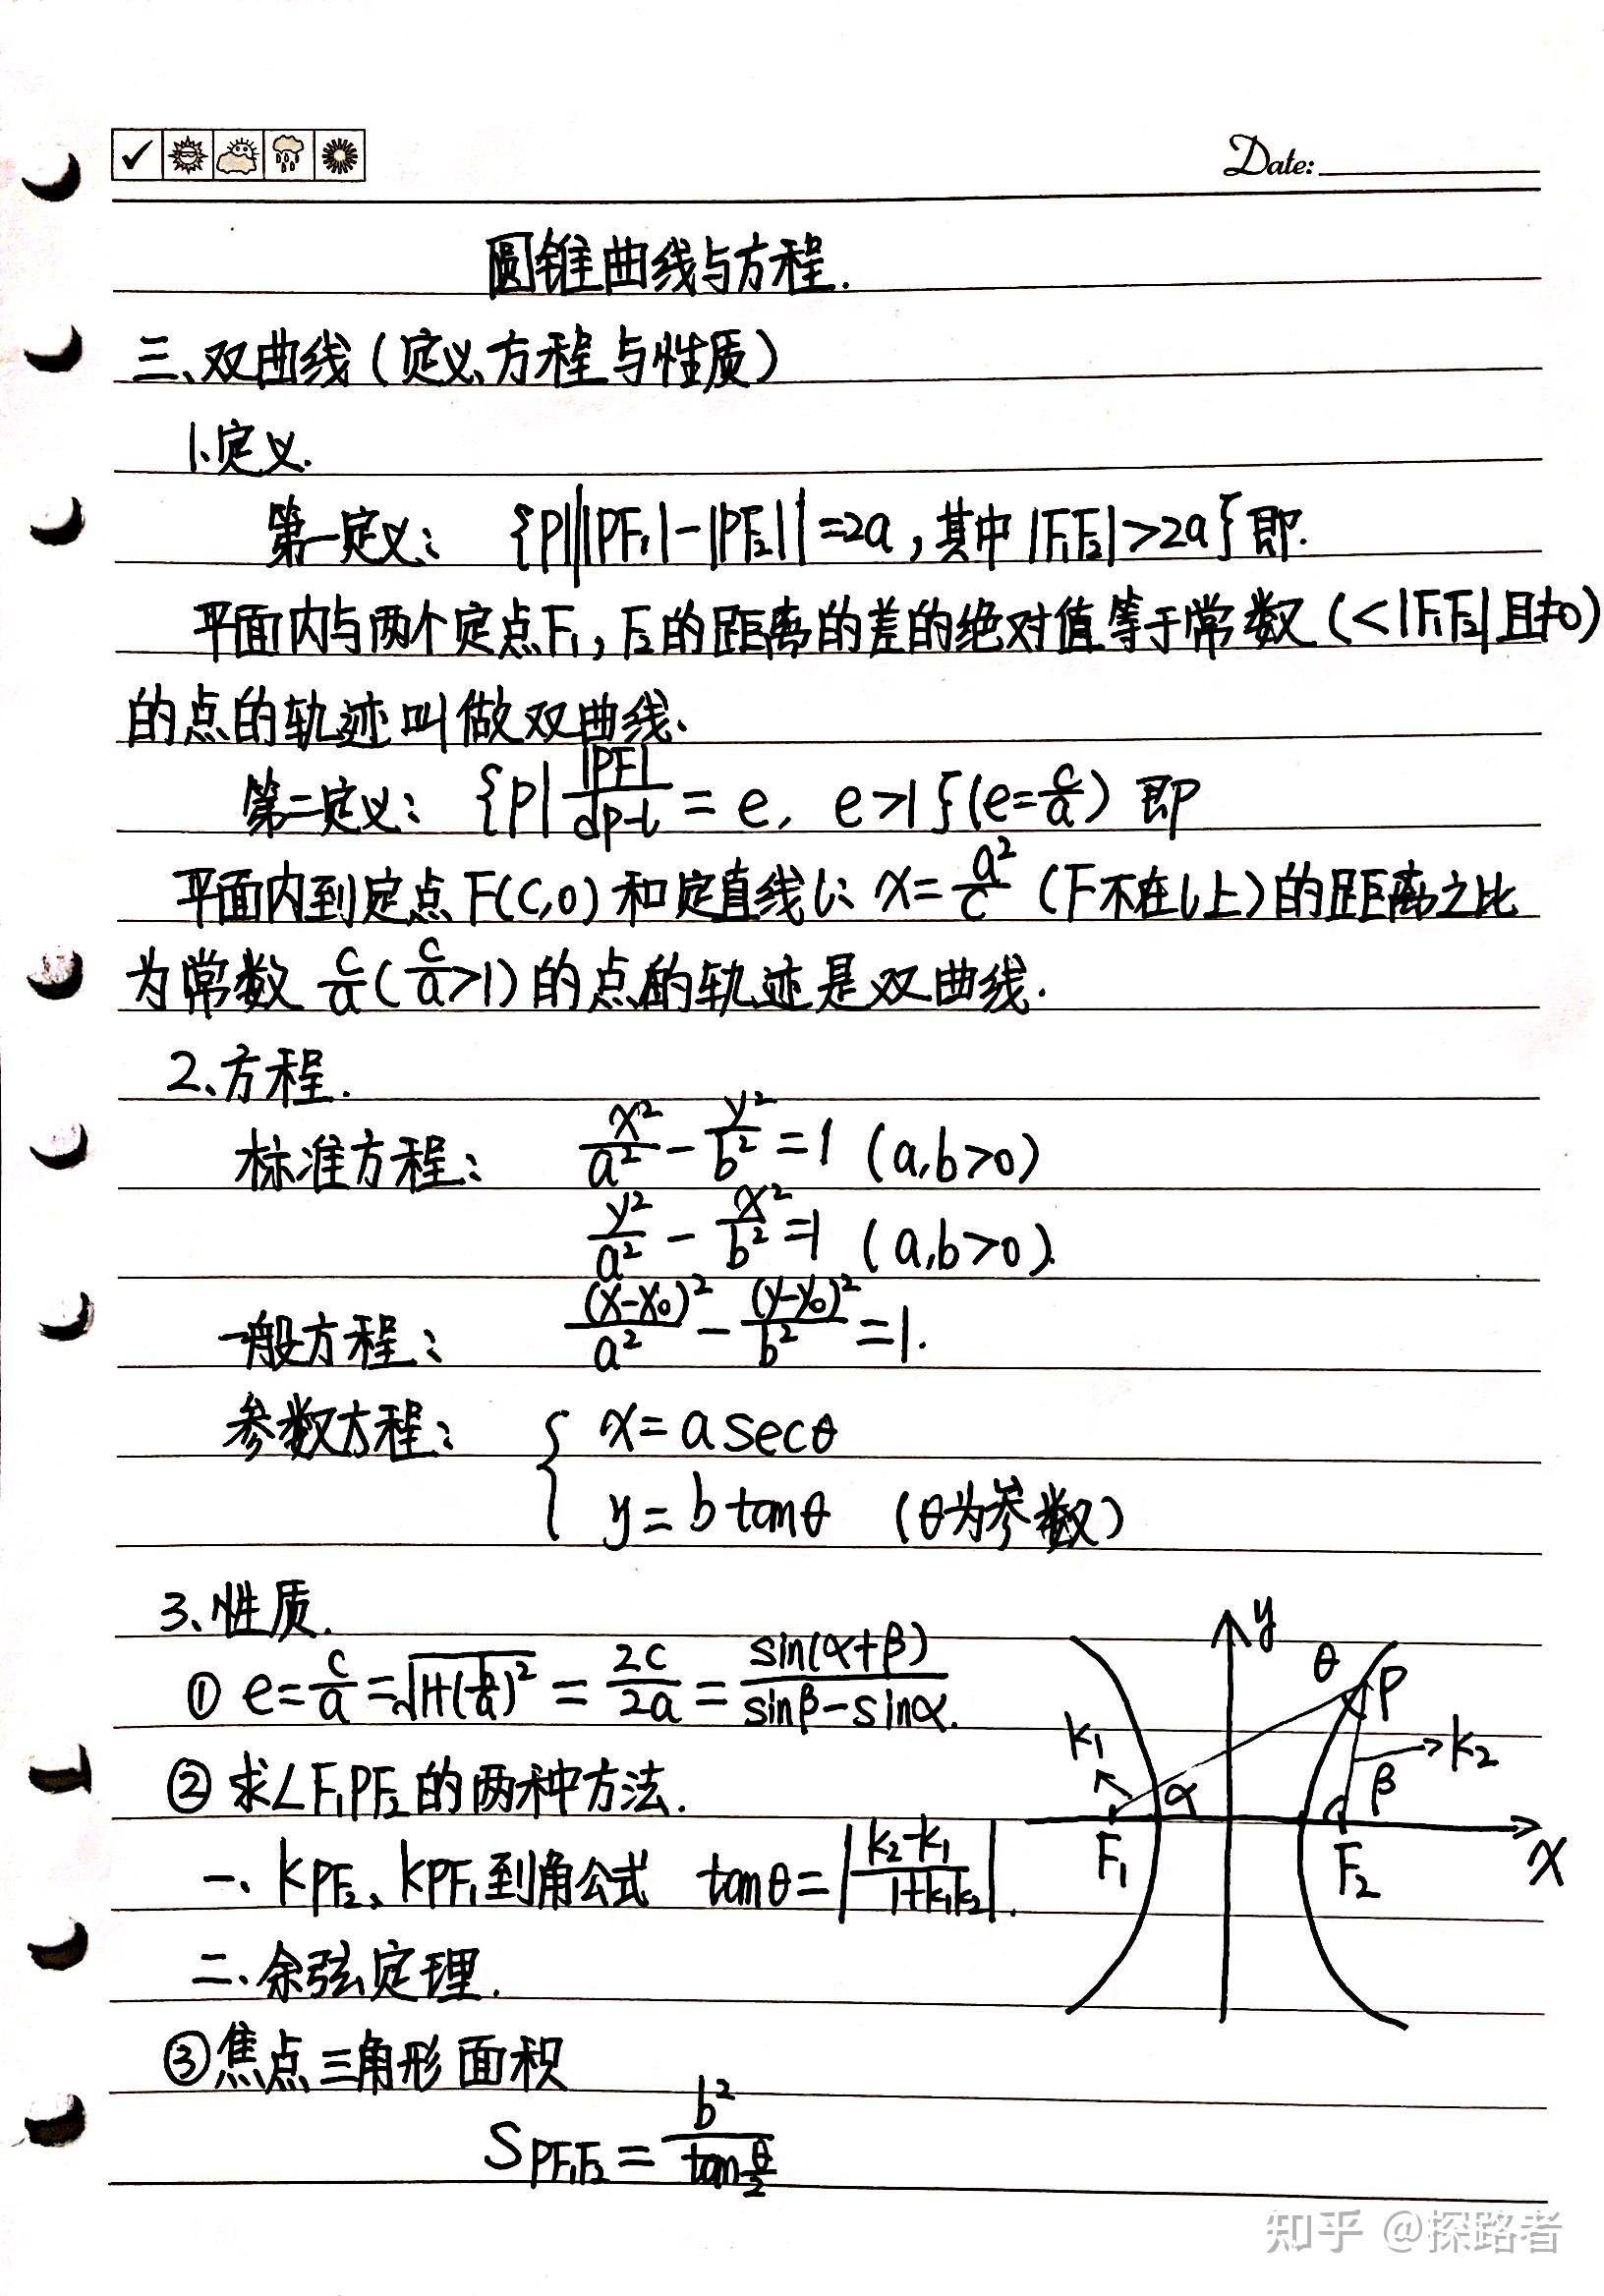 Date:
圆锥曲线与方程.
三、双曲线(定义、方程与性质)
1.定义.
第一定义: {P|||PF₁|-|PF₂||=2a,其中|F₁F₂|>2a}即.
平面内与两个定点F₁,F₂的距离的差的绝对值等于常数(<|F₁F₂|且≠0)
的点的轨迹叫做双曲线、
第二定义: {P||PF|/dp-l=e, e>1}(e=c/a) 即
平面内到定点F(C,0)和定直线l: x=a²/c (F不在l上)的距离之比
为常数 c/a(c/a>1)的点的轨迹是双曲线.
2、方程.
标准方程: x²/a²-y²/b²=1 (a,b>0)
y²/a²-x²/b²=1 (a,b>0).
一般方程: (x-x₀)²/a²-(y-y₀)²/b²=1.
参数方程: { x=a secθ
y=b tanθ (θ为参数)
3、性质.
① e=c/a=√1+(b/a)²=2c/2a=sin(α+β)/sinβ-sinα.
② 求∠F₁PF₂的两种方法.
一、kPF₂、kPF₁到角公式 tanθ=|k₂-k₁/1+k₁k₂|.
二、余弦定理.
③焦点三角形面积
SPF₁F₂=b²/tanθ/2
y
θ
P
k₁
k₂
α
β
F₁
F₂
x
知乎 @探路者